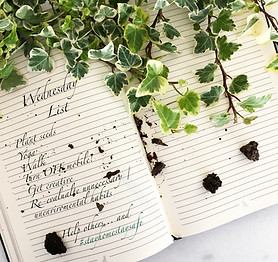 Wednesday
List
Plant seeds
Yoga
Walk
Turn OFF mobile!
Get creative
Re-evaluate unnecessary /
unenviromental habits
Help others...and
#stayhomestaysafe